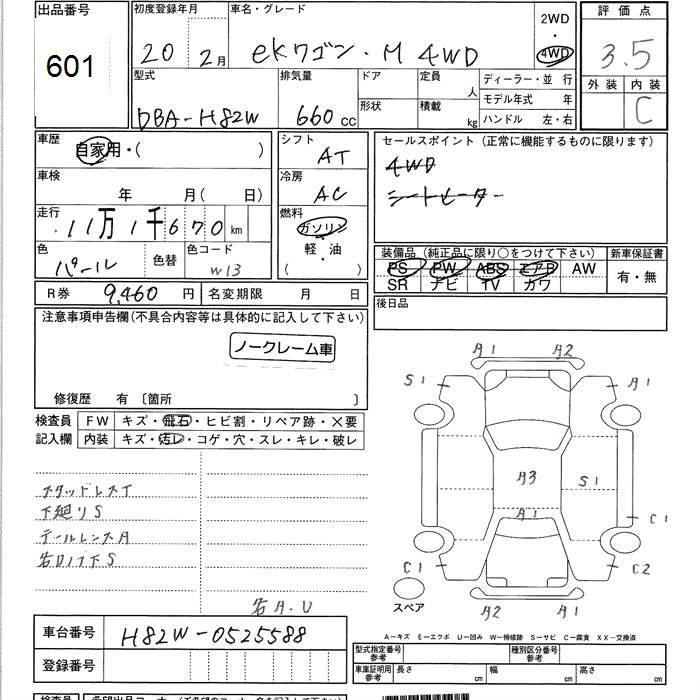 出品番号 初度登録年月 車名・グレード 2WD・4WD 評価点
601 20年 2月 eKワゴン・M 4WD 3.5
外装 内装 C
型式 排気量 ドア 定員 人 ディーラー・並行
DBA-H82W 660cc 形状 積載 kg モデル年式 年
ハンドル 左・右
車歴 自家用・( ) シフト AT セールスポイント(正常に機能するものに限ります)
4WD
車検 年 月(日) 冷房 AC シートヒーター
走行 11万1千670km 燃料 ガソリン
軽・油
( )
色 パール 色替 色コード W13
装備品(純正品に限り○をつけて下さい) 新車保証書
PS PW ABS エアB AW 有・無
SR ナビ TV カワ
R券 9,460円 名変期限 月 日 後日品
注意事項申告欄(不具合内容等は具体的に記入して下さい)
ノークレーム車
修復歴 有〔箇所 〕
検査員 FW キズ・飛石・ヒビ割・リペア跡・×要
記入欄 内装 キズ・汚レ・コゲ・穴・スレ・キレ・破レ
スタッドレスT
下廻りS
テールレンズA
右ロソ下S
右A.U
A1 A2
S1 A1
A3 S1
A1 C1
C1 C2
スペア A2 A1
A―キズ E―エクボ U―凹み W―補修跡 S―サビ C―腐食 XX―交換済
車台番号 H82W-0525588
登録番号
型式指定番号 参考 種別区分番号 参考
車庫証明用 参考 長さ cm 幅 cm 高さ cm